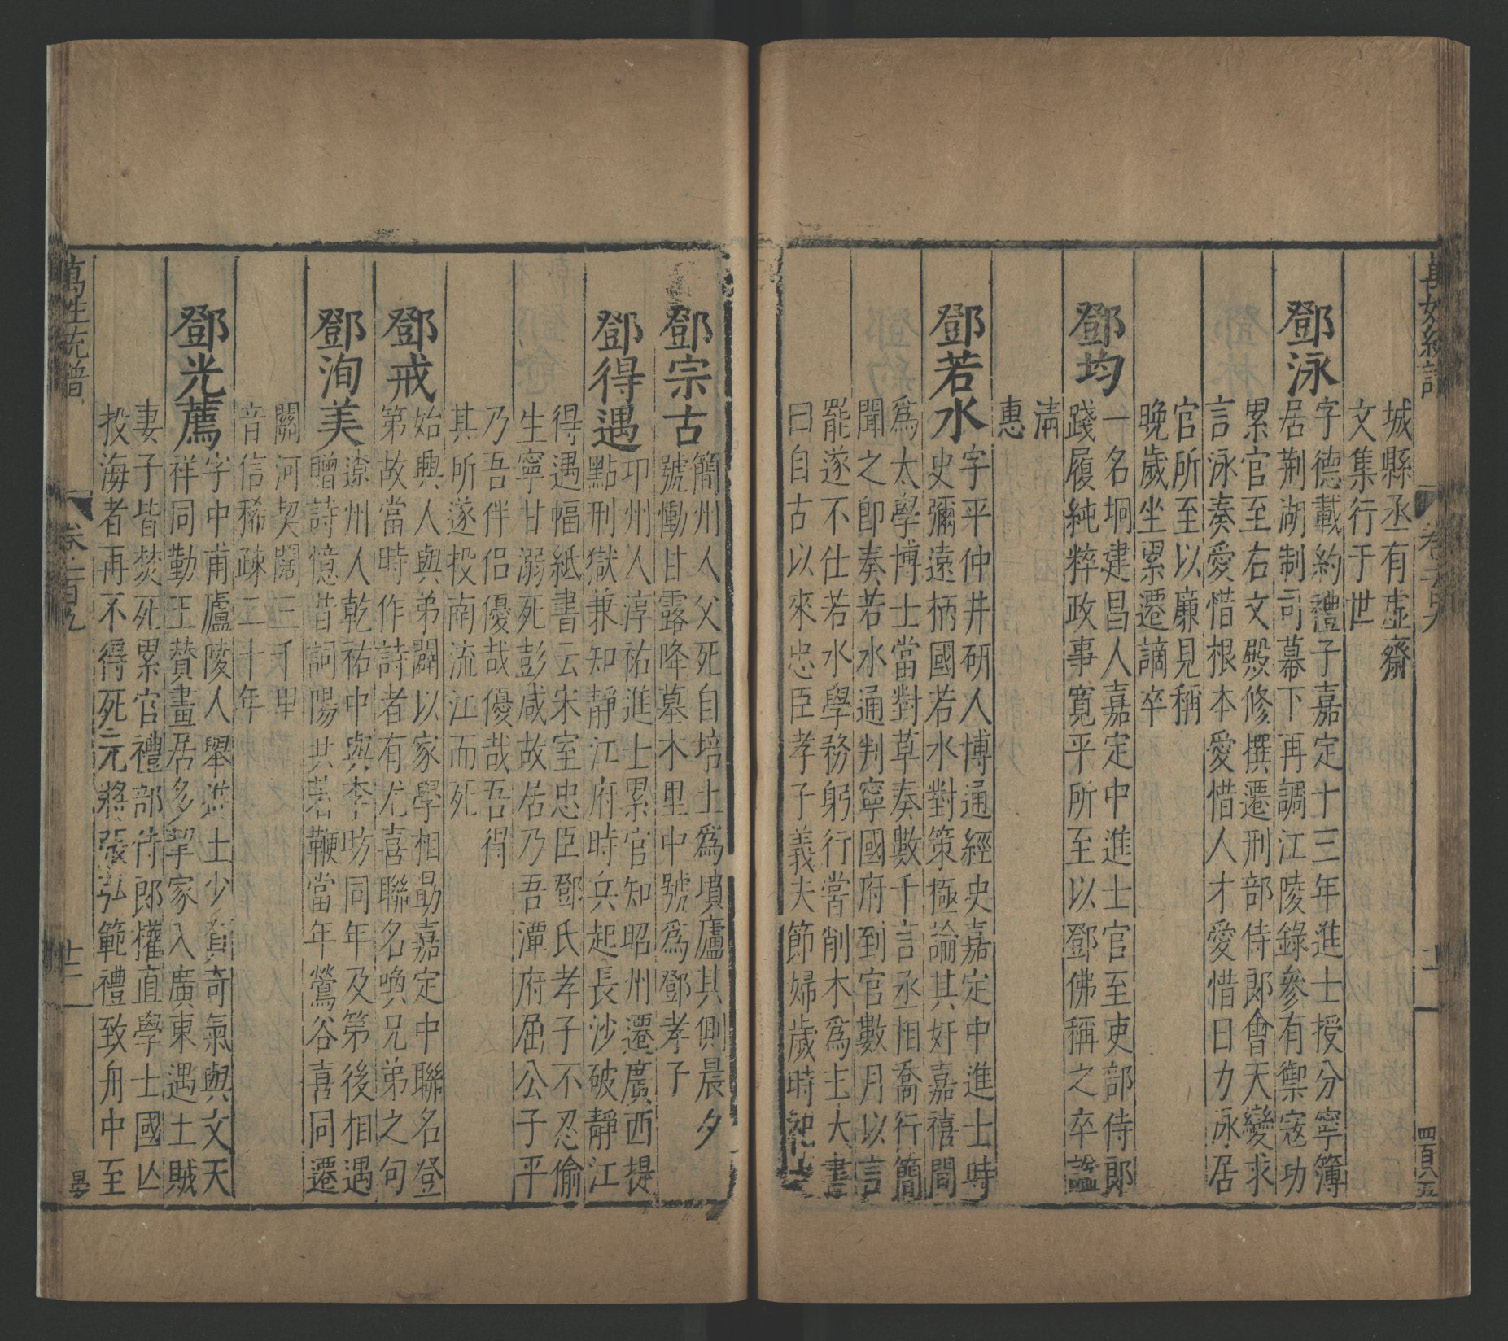 城縣丞有虛齋
文集行于世
鄧泳
字德載約禮子嘉定十三年進士授分寧簿
居荆湖制司幕下再調江陵錄參有禦寇功
累官至右文殿修撰遷刑部侍郎會天變求
言泳奏愛惜根本愛惜人才愛惜日力泳居
官所至以廉見稱
晚歲坐累遷謫卒
鄧均
一名坰建昌人嘉定中進士官至吏部侍郎
踐履純粹政事寬平所至以鄧佛稱之卒諡
清
惠
鄧若水
字平仲井研人博通經史嘉定中進士時
史彌遠柄國若水對策極論其奸嘉禧間
爲太學博士當對草奏數千言丞相喬行簡
聞之卽奏若水通判寧國府到官數月以言
罷遂不仕若水學務躬行嘗削木爲主大書
曰自古以來忠臣孝子義夫節婦歲時祀
鄧宗古
簡州人父死自培土爲墳廬其側晨夕
號慟甘露降墓木里中號爲鄧孝子
鄧得遇
卭州人淳祐進士累官知昭州遷廣西提
點刑獄兼知靜江府時兵起長沙破靜江
得遇幅紙書云宋室忠臣鄧氏孝子不忍偷
生寧甘溺死彭咸故居乃吾潭府屈公子平
乃吾伴侶優哉優哉吾得
其所遂投南流江而死
鄧戒
始興人與弟闢以家學相勗嘉定中聯名登
第故當時作詩者有尤喜聯名喚兄弟之句
鄧洵美
連州人乾祐中與李昉同年及第後相遇
贈詩憶昔詞陽共著鞭當年鶯谷喜同遷
關河契闊三千里
音信稀疎二十年
鄧光薦
字中甫廬陵人舉進士少負奇氣與文天
祥同勤王贊畫居多挈家入廣東遇土賊
妻子皆焚死累官禮部侍郎權直學士國亾
投海者再不得死元將張弘範禮致舟中至
萬姓統譜
卷一百九
十一
四百八五
萬姓統譜
卷一百九
十二